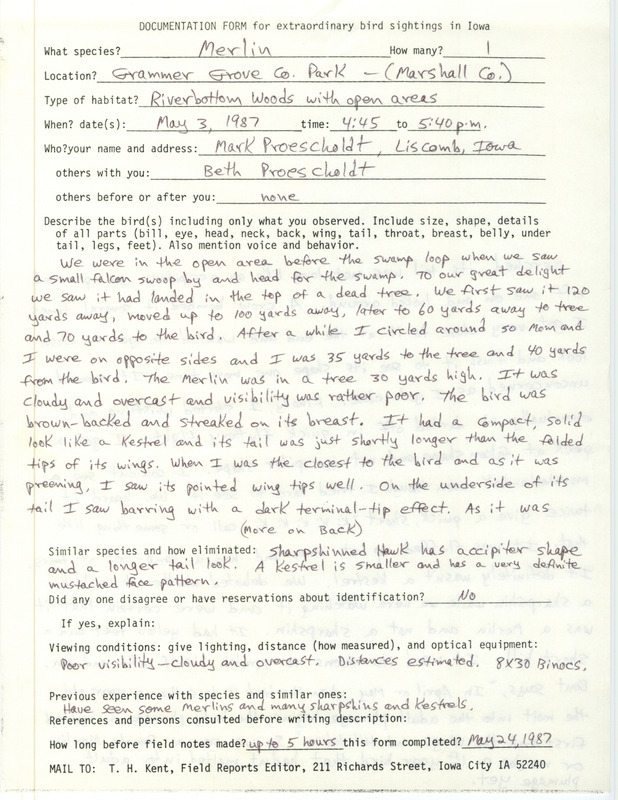 DOCUMENTATION FORM for extraordinary bird sightings in Iowa
What species? Merlin How many? 1
Location? Grammer Grove Co. Park - (Marshall Co.)
Type of habitat? Riverbottom Woods with open areas
When? date(s): May 3, 1987 time: 4:45 to 5:40 p.m.
Who? your name and address: Mark Proescholdt, Liscomb, Iowa
others with you: Beth Proescholdt
others before or after you: none
Describe the bird(s) including only what you observed. Include size, shape, details
of all parts (bill, eye, head, neck, back, wing, tail, throat, breast, belly, under
tail, legs, feet). Also mention voice and behavior.
We were in the open area before the swamp loop when we saw
a small falcon swoop by and head for the swamp. To our great delight
we saw it had landed in the top of a dead tree. We first saw it 120
yards away, moved up to 100 yards away, later to 60 yards away to tree
and 70 yards to the bird. After a while I circled around so Mom and
I were on opposite sides and I was 35 yards to the tree and 40 yards
from the bird. The Merlin was in a tree 30 yards high. It was
cloudy and overcast and visibility was rather poor. The bird was
brown-backed and streaked on its breast. It had a compact, solid
look like a Kestrel and its tail was just shortly longer than the folded
tips of its wings. When I was the closest to the bird and as it was
preening, I saw its pointed wing tips well. On the underside of its
tail I saw barring with a dark terminal-tip effect. As it was
(More on Back)
Similar species and how eliminated: Sharpshinned Hawk has accipiter shape
and a longer tail look. A Kestrel is smaller and has a very definite
mustached face pattern.
Did any one disagree or have reservations about identification? No
If yes, explain:
Viewing conditions: give lighting, distance (how measured), and optical equipment:
Poor visibility - cloudy and overcast. Distances estimated. 8X30 Binocs.
Previous experience with species and similar ones:
Have seen some Merlins and many sharpshins and Kestrels.
References and persons consulted before writing description:
How long before field notes made? up to 5 hours this form completed? May 24, 1987
MAIL TO: T. H. Kent, Field Reports Editor, 211 Richards Street, Iowa City IA 52240